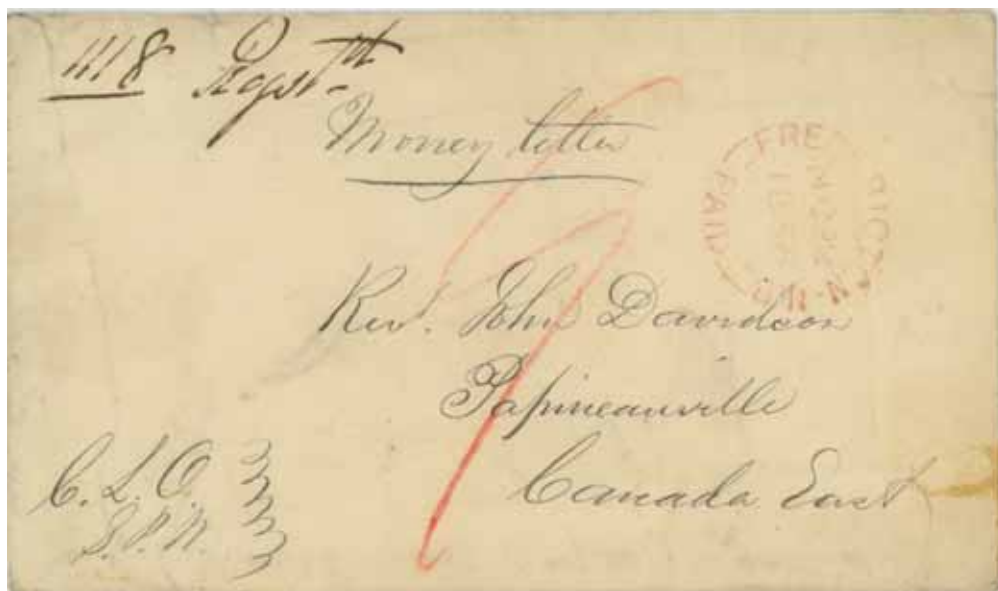 1118 Regist^d
Money letter
PAID
Rev. John Davidson
Papineauville
Canada East
C. L. O.
S. P. N.